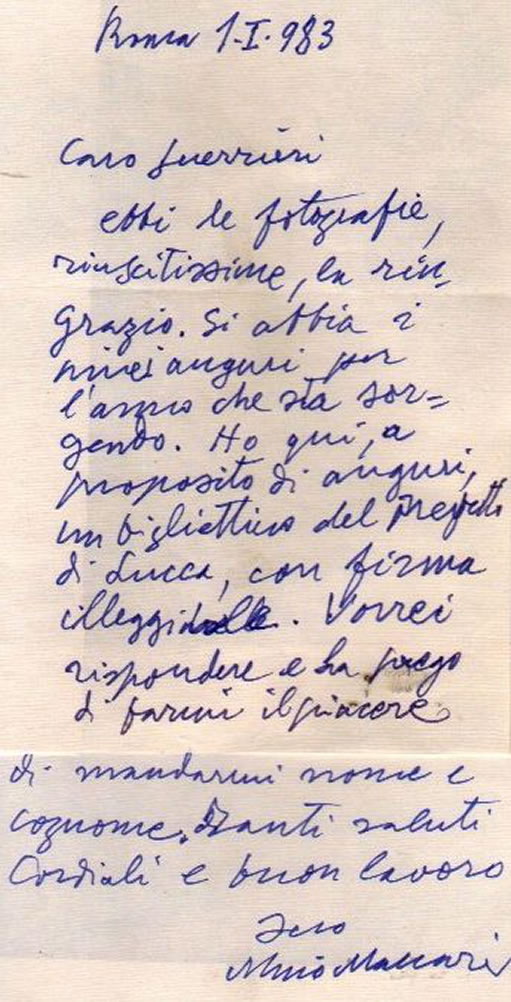 Roma 1-I-983
Caro Guerrieri
ebbi le fotografie,
riuscitissime, la rin-
grazio. Si abbia i
miei auguri per
l'anno che sta sor=
gendo. Ho qui, a
proposito di auguri,
un bigliettino del Prefetto
di Lucca, con firma
illeggibile. Vorrei
rispondere e la prego
di farmi il piacere
di mandarmi nome e
cognome. Tanti saluti
Cordiali e buon lavoro
Suo
Mino Maccari